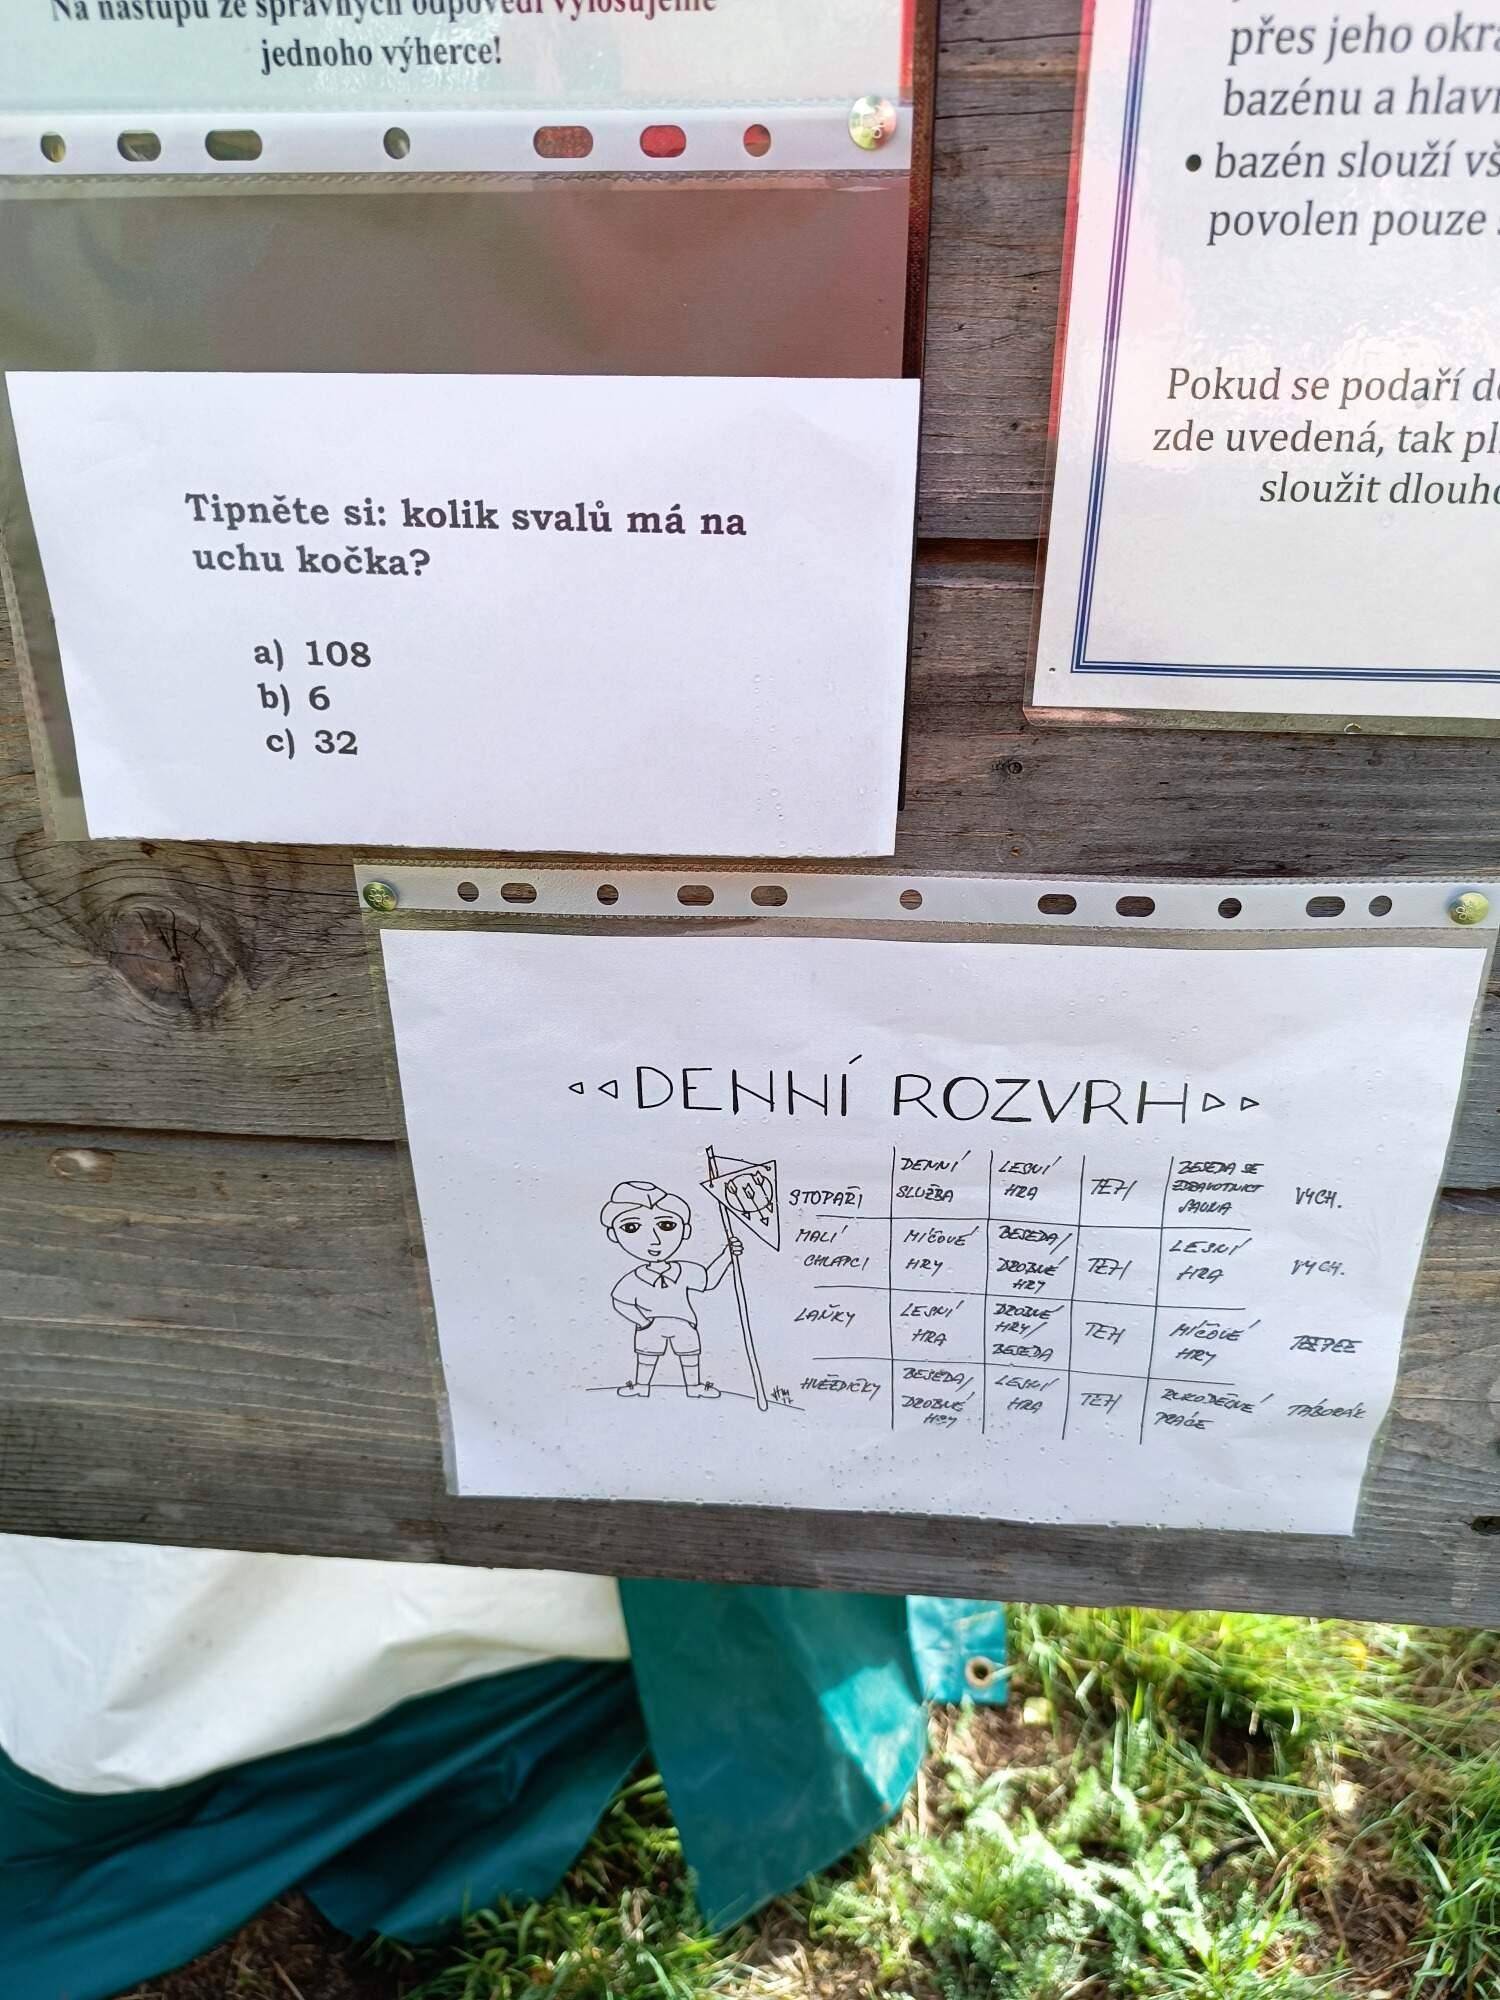 Na nástupu ze správných odpovědí vylosujeme
jednoho výherce!
přes jeho okra
bazénu a hlavn
• bazén slouží vš
povolen pouze
Pokud se podaří do
zde uvedená, tak pl
sloužit dlouho
Tipněte si: kolik svalů má na
uchu kočka?
a) 108
b) 6
c) 32
DENNÍ ROZVRH
STOPAŘI
DENNÍ
SLUŽBA
LESNÍ
HRA
TEH
BESEDA SE
ZDRAVOTNICÍ
SAUNA
VYCH.
MALÍ
CHLAPCI
MÍČOVÉ
HRY
BESEDA/
DROBNÉ
HRY
TEH
LESNÍ
HRA
VYCH.
LAŇKY
LESNÍ
HRA
DROBNÉ
HRY/
BESEDA
TEH
MÍČOVÉ
HRY
TEEPEE
HVĚZDIČKY
BESEDA/
DROBNÉ
HRY
LESNÍ
HRA
TEH
RUKODĚLNÉ
PRÁCE
TÁBORÁK